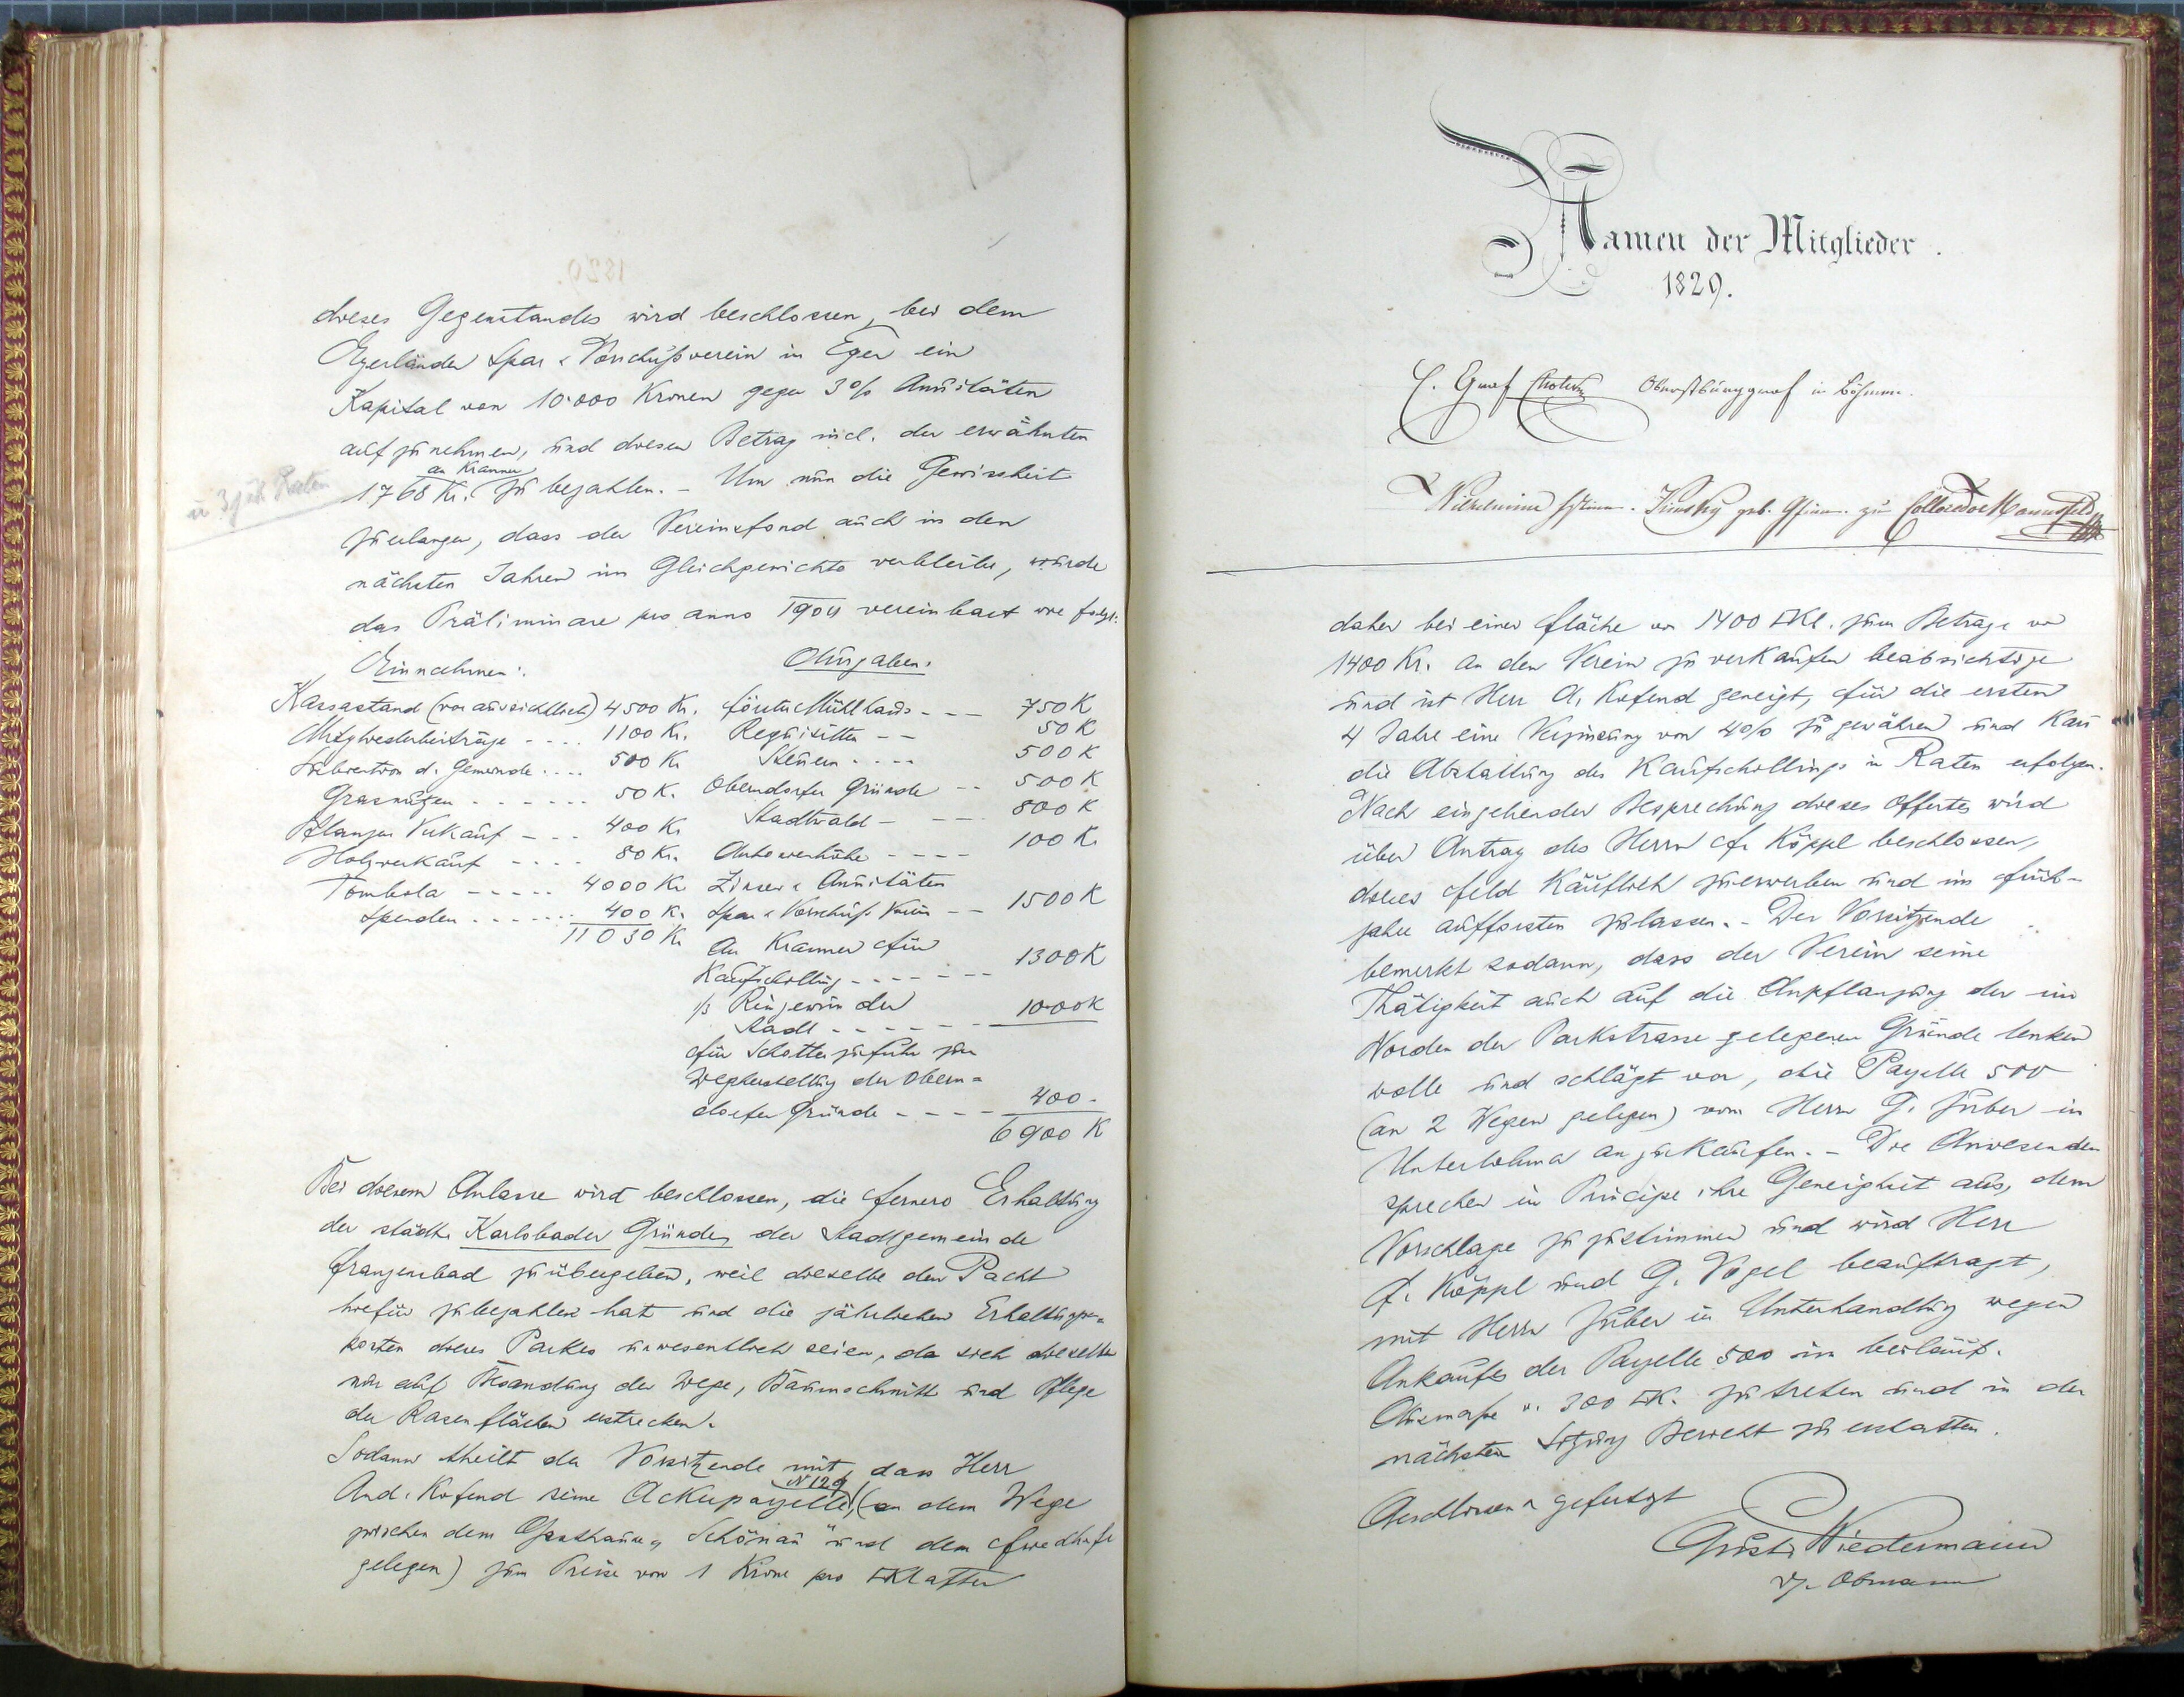 dieses Gegenstandes wird beschlossen, bei dem
Egerländer Spar & Vorschußverein in Eger ein
Kapital von 10·000 Kronen gegen 3% Annuitäten
aufzunehmen, und diesen Betrag incl. der erwähnten
an Kramer
1768 Kr. zu bezahlen. – Um nun die Gewissheit
zu erlangen, dass der Vereinsfond auch in den
nächsten Jahren im Gleichgewichte verbleibe, wurde
das Präliminare pro anno 1904 vereinbart wie folgt:
Einnahmen: Ausgaben:
Kassastand (voraussichtlich) 4500 Kr. Förster Mühlhans - - 750 K
Mitgliederbeiträge - - . . 1100 Kr. Requisiten - - 50 K
Subvention d. Gemeinde . . . . 500 Kr Steuern . . . . 500 K
Grasnutzen - - - - - - 50 K. Oberndorfer Gründe - - 500 K
Pflanzen Verkauf - - - 400 Kr Stadtwald - - - 800 K
Holzverkauf - - - - 80 Kr. Antonienhöhe - - - - 100 K
Tombola - - - - - 4000 Kr Zinsen & Annuitäten
Spenden . . . . . . . 400 K. Spar & Vorschuß Verein - - 1500 K
11030 Kr
An Kramer für
Kaufschilling - - - - - - 1300 K
1/3 Reingewinn der
Stadt - - - - - - 1000 K
für Schotterzufuhr zur
Wegherstellung der Obern=
dorfer Gründe - - - - 400.-
6900 K
Bei diesem Anlasse wird beschlossen, die fernere Erhaltung
der städt. Karlsbader Gründe, der Stadtgemeinde
Franzensbad zu übergeben, weil dieselbe den Pacht
hiefür zu bezahlen hat und die jährlichen Erhaltungs=
kosten dieses Parkes unwesentlich seien, da sich dieselben
nur auf Besandung der Wege, Baumschnitt und Pflege
der Rasenflächen erstrecken.
Sodann theilt der Vorsitzende mit, dass Herr
N 129
And. Kofend seine Ackerparzelle, (an dem Wege
zwischen dem Gasthause „Schönau“ und dem Friedhofe
gelegen) zum Preise von 1 Krone pro □Klafter
Namen der Mitglieder.
1829.
C. Graf Chotek Oberstburggraf in Böhmen.
Wilhelmine Kinsky geb. zu Colloredo Mannsfeld
daher bei einer Fläche von 1400 □Kl. zum Betrage von
1400 Kr. an den Verein zu verkaufen beabsichtige
und ist Herr A. Kofend geneigt, für die ersten
4 Jahre eine Verzinsung von 4% zu gewähren und kann
die Abstattung des Kaufschillings in Raten erfolgen.
Nach eingehender Besprechung dieses Offertes wird
über Antrag des Herrn F. Köppl beschlossen,
dieses Feld käuflich zu erwerben und im Früh-
jahre aufforsten zu lassen. – Der Vorsitzende
bemerkt sodann, dass der Verein seine
Thätigkeit auch auf die Anpflanzung der im
Norden der Parkstrasse gelegenen Gründe lenken
wolle und schlägt vor, die Parzelle 500
(an 2 Wegen gelegen) vom Herrn G. Huber in
Unterlohma anzukaufen. – Die Anwesenden
sprechen im Principe ihre Geneigtheit aus, dem
Vorschlage zuzustimmen und wird Herr
F. Köppl und G. Vogel beauftragt,
mit Herrn Huber in Unterhandlung wegen
Ankaufes der Parzelle 500 im beiläuf.
Ausmaße v. 300 □K. zu treten und in der
nächsten Sitzung Bericht zu erstatten.
Geschlossen & gefertigt
Gust. Wiedermann
Obmann